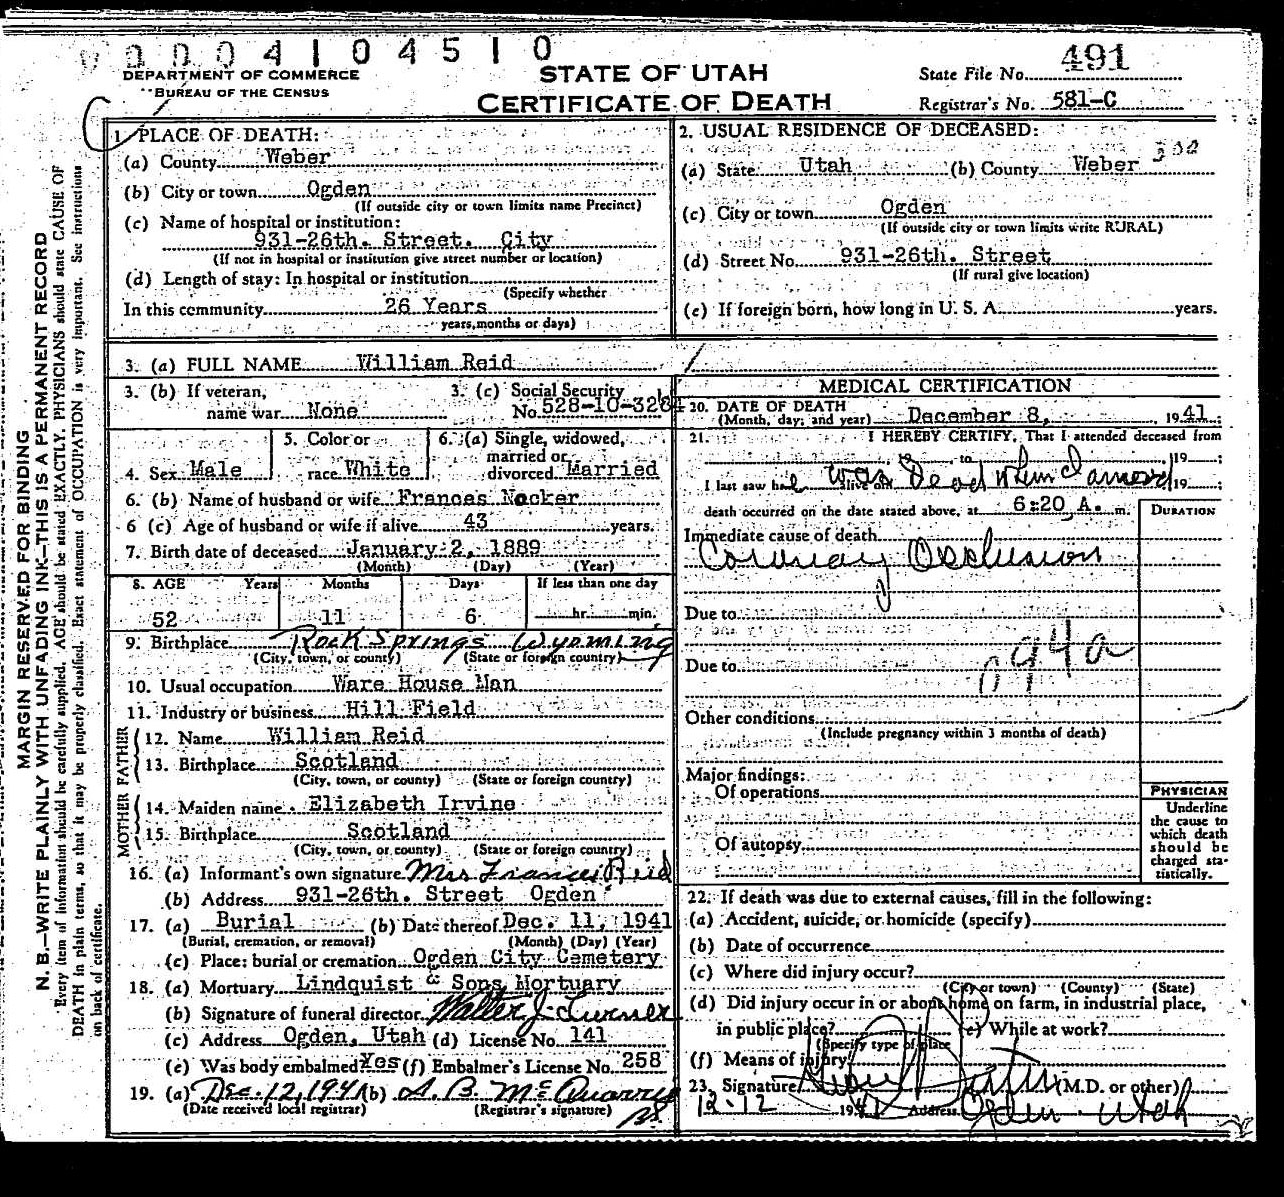 0004104510
DEPARTMENT OF COMMERCE
BUREAU OF THE CENSUS
STATE OF UTAH
CERTIFICATE OF DEATH
State File No. 491
Registrar's No. 581-C
MARGIN RESERVED FOR BINDING
N. B.—WRITE PLAINLY WITH UNFADING INK—THIS IS A PERMANENT RECORD
Every item of information should be carefully supplied. AGE should be stated EXACTLY. PHYSICIANS should state CAUSE OF
DEATH in plain terms, so that it may be properly classified. Exact statement of OCCUPATION is very important. See instructions
on back of certificate.
1. PLACE OF DEATH:
(a) County Weber
(b) City or town Ogden
(If outside city or town limits name Precinct)
(c) Name of hospital or institution:
931-26th. Street. City
(If not in hospital or institution give street number or location)
(d) Length of stay: In hospital or institution
(Specify whether
In this community 26 Years
years, months or days)
2. USUAL RESIDENCE OF DECEASED:
(a) State Utah (b) County Weber
(c) City or town Ogden
(If outside city or town limits write RURAL)
(d) Street No. 931-26th. Street
(If rural give location)
(e) If foreign born, how long in U. S. A. years.
3. (a) FULL NAME William Reid
3. (b) If veteran, name war None
3. (c) Social Security No. 528-10-3284
4. Sex Male
5. Color or race White
6. (a) Single, widowed, married or divorced Married
6. (b) Name of husband or wife Frances Nocker
6 (c) Age of husband or wife if alive 43 years.
7. Birth date of deceased January 2, 1889
(Month) (Day) (Year)
8. AGE Years Months Days If less than one day
52 11 6 hr. min.
9. Birthplace Rock Springs Wyoming
(City, town, or county) (State or foreign country)
10. Usual occupation Ware House Man
11. Industry or business Hill Field
FATHER
12. Name William Reid
13. Birthplace Scotland
(City, town, or county) (State or foreign country)
MOTHER
14. Maiden name Elizabeth Irvine
15. Birthplace Scotland
(City, town, or county) (State or foreign country)
16. (a) Informant's own signature Mrs Frances Reid
(b) Address 931-26th. Street Ogden
17. (a) Burial (b) Date thereof Dec. 11, 1941
(Burial, cremation, or removal) (Month) (Day) (Year)
(c) Place: burial or cremation Ogden City Cemetery
18. (a) Mortuary Lindquist & Sons Mortuary
(b) Signature of funeral director Walter J. Turner
(c) Address Ogden, Utah (d) License No. 141
(e) Was body embalmed? Yes (f) Embalmer's License No. 258
19. (a) Dec. 12, 1941 (b) A. B. McQuarrie
(Date received local registrar) (Registrar's signature)
MEDICAL CERTIFICATION
20. DATE OF DEATH
(Month, day, and year) December 8, 1941;
21. I HEREBY CERTIFY, That I attended deceased from
, 19 to , 19 ;
I last saw h alive on , 19 ;
he was Dead when I arrived
death occurred on the date stated above, at 6:20 A. m.
DURATION
Immediate cause of death
Coronary Occlusion
Due to
94a
Due to
Other conditions
(Include pregnancy within 3 months of death)
Major findings:
Of operations
Of autopsy
PHYSICIAN
Underline
the cause to
which death
should be
charged sta-
tistically.
22. If death was due to external causes, fill in the following:
(a) Accident, suicide, or homicide (specify)
(b) Date of occurrence
(c) Where did injury occur?
(City or town) (County) (State)
(d) Did injury occur in or about home on farm, in industrial place,
in public place? (e) While at work?
(Specify type of place
(f) Means of injury
23. Signature (M.D. or other)
12-12 1941 Address Ogden Utah